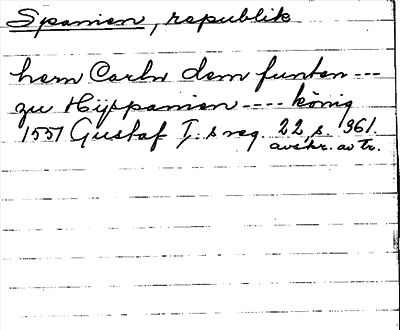 Spanien, republik
hern Carln dem funten ---
zu Hyppanien ---- könig
1551 Gustaf I:s reg. 22, s. 961.
avskr. av tr.